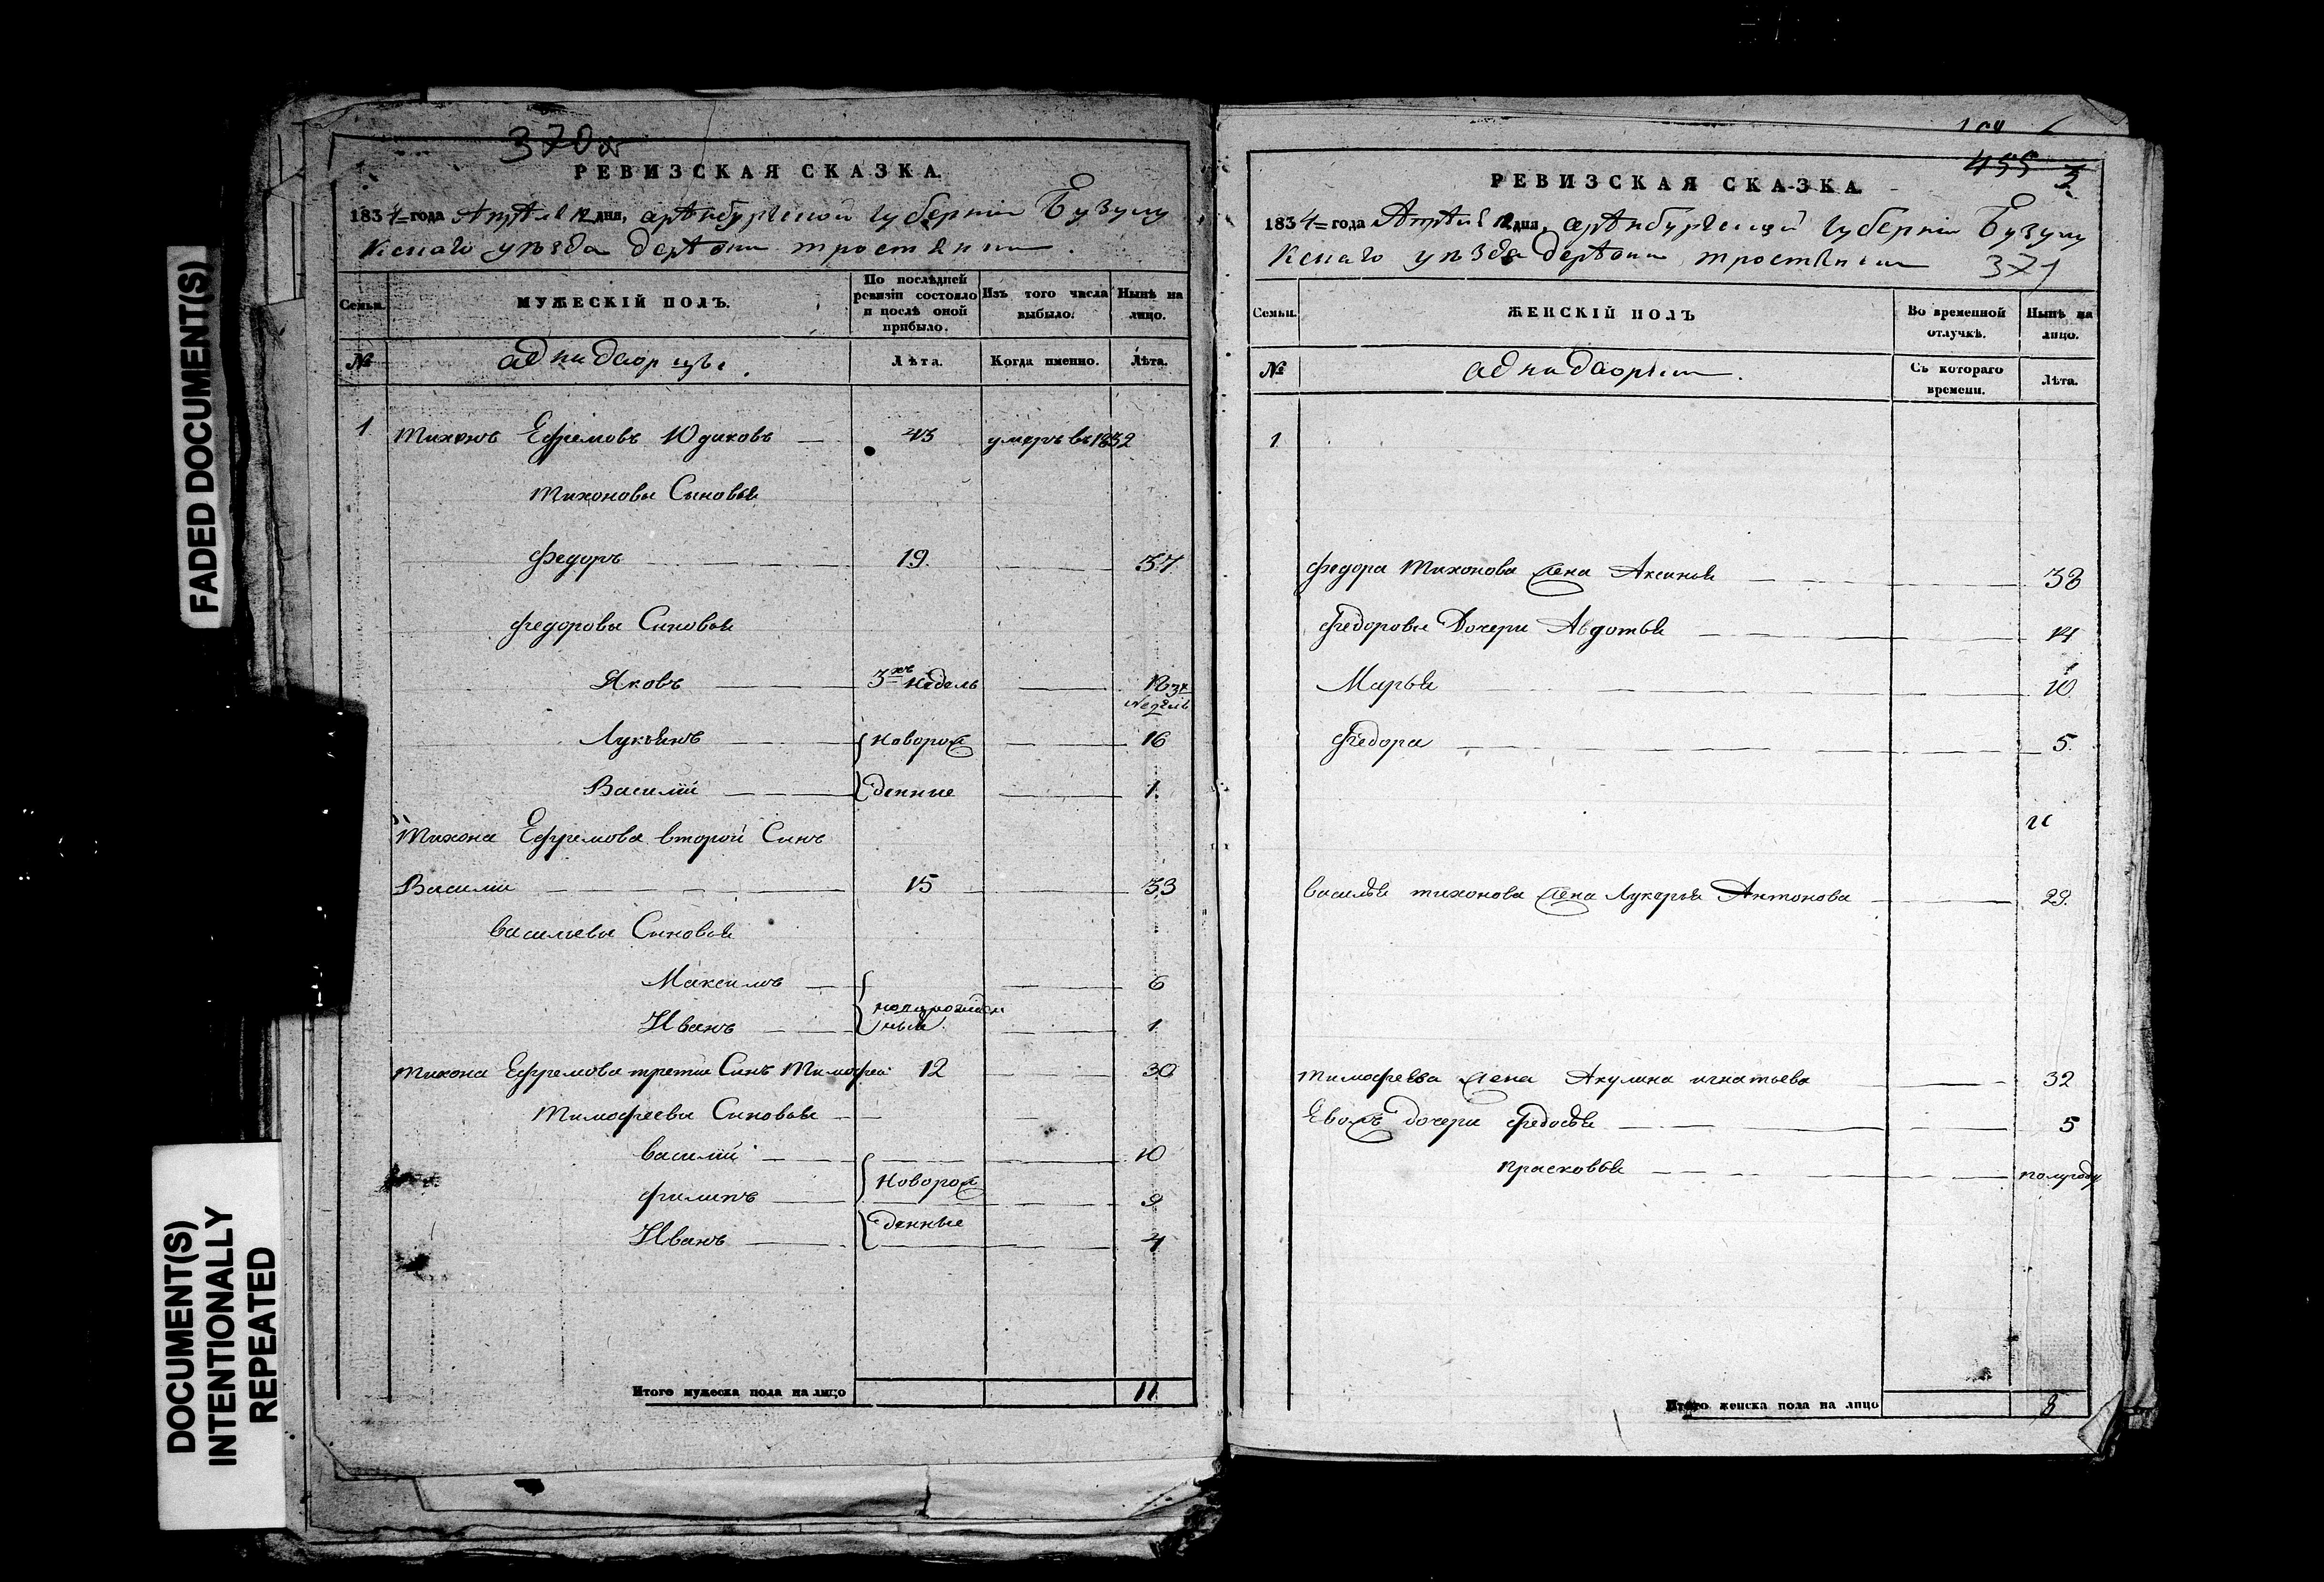 FADED DOCUMENT(S)
DOCUMENT(S)
INTENTIONALLY
REPEATED
370
РЕВИЗСКАЯ СКАЗКА.
1834 года дня, губернии Бузулу
кскаго уѣзда
Семьи.
МУЖЕСКІЙ ПОЛЪ.
По послѣдней ревизіи состояло и послѣ оной прибыло.
Изъ того числа выбыло.
Нынѣ на лицо.
№
аднидворцы.
Лѣта.
Когда именно.
Лѣта.
1 Тихонъ Ефремовъ Юдиковъ 43 умеръ въ 1832
Тихоновы Сыновья
Федоръ 19. 37
Федоровы Сыновья
Яковъ 3хъ недель 18 3х недель
Лукьянъ Новорож 16
Василій денные 1.
Тихона Ефремова второй Сынъ
Василий 15 33
Васильевы Сыновья
Максимъ 6
Иванъ 1
Тихона Ефремова третий Сынъ Тимофей 12 30
Тимофеевы Сыновья
Василий 10
Филипъ Новорож 9
Иванъ денные 4
Итого мужеска пола на лицо 11
455
РЕВИЗСКАЯ СКАЗКА.
1834 года дня, губернии Бузулу
кскаго уѣзда
371
Семьи.
ЖЕНСКІЙ ПОЛЪ
Во временной отлучкѣ.
Нынѣ на лицо.
№
Съ котораго времени.
Лѣта.
1
Федора Тихонова жена Аксинья 38
Федоровы Дочери Авдотья 14
Марья 10
Федора 5.
Василья тихонова жена Лукерья Антонова 29.
Тимофеева жена Акулина игнатьева 32
Евожъ дочери федосья 5
прасковья полугоду
Итого женска пола на лицо 8